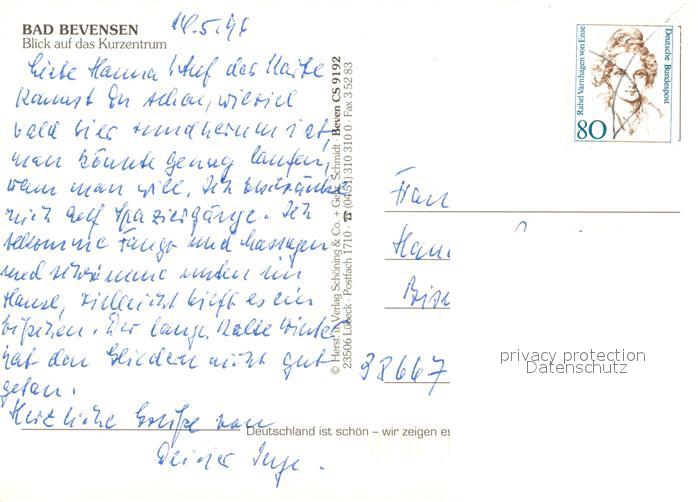 BAD BEVENSEN
Blick auf das Kurzentrum
14.5.96
Liebe Hanna! Auf der Karte
kannst Du sehen, wieviel
Wald hier rundherum ist,
man könnte genug laufen,
wenn man will. Ich beschränke
mich auf Spaziergänge. Ich
bekomme Fango und Massagen
und schwimme unten im
Hause, vielleicht hilft es ein
bißchen. Der lange, kalte Winter
hat den Gliedern nicht gut
getan.
Herzliche Grüße von
Deiner Inge.
© Herst. u. Verlag Schöning & Co. + Gebr. Schmidt · Beven CS 9192
23506 Lübeck · Postfach 1710 · ☎ (0451) 310 310 0 · Fax 3 52 83
Deutschland ist schön – wir zeigen es
Rahel Varnhagen von Ense
Deutsche Bundespost
80
Frau
38667
privacy protection
Datenschutz